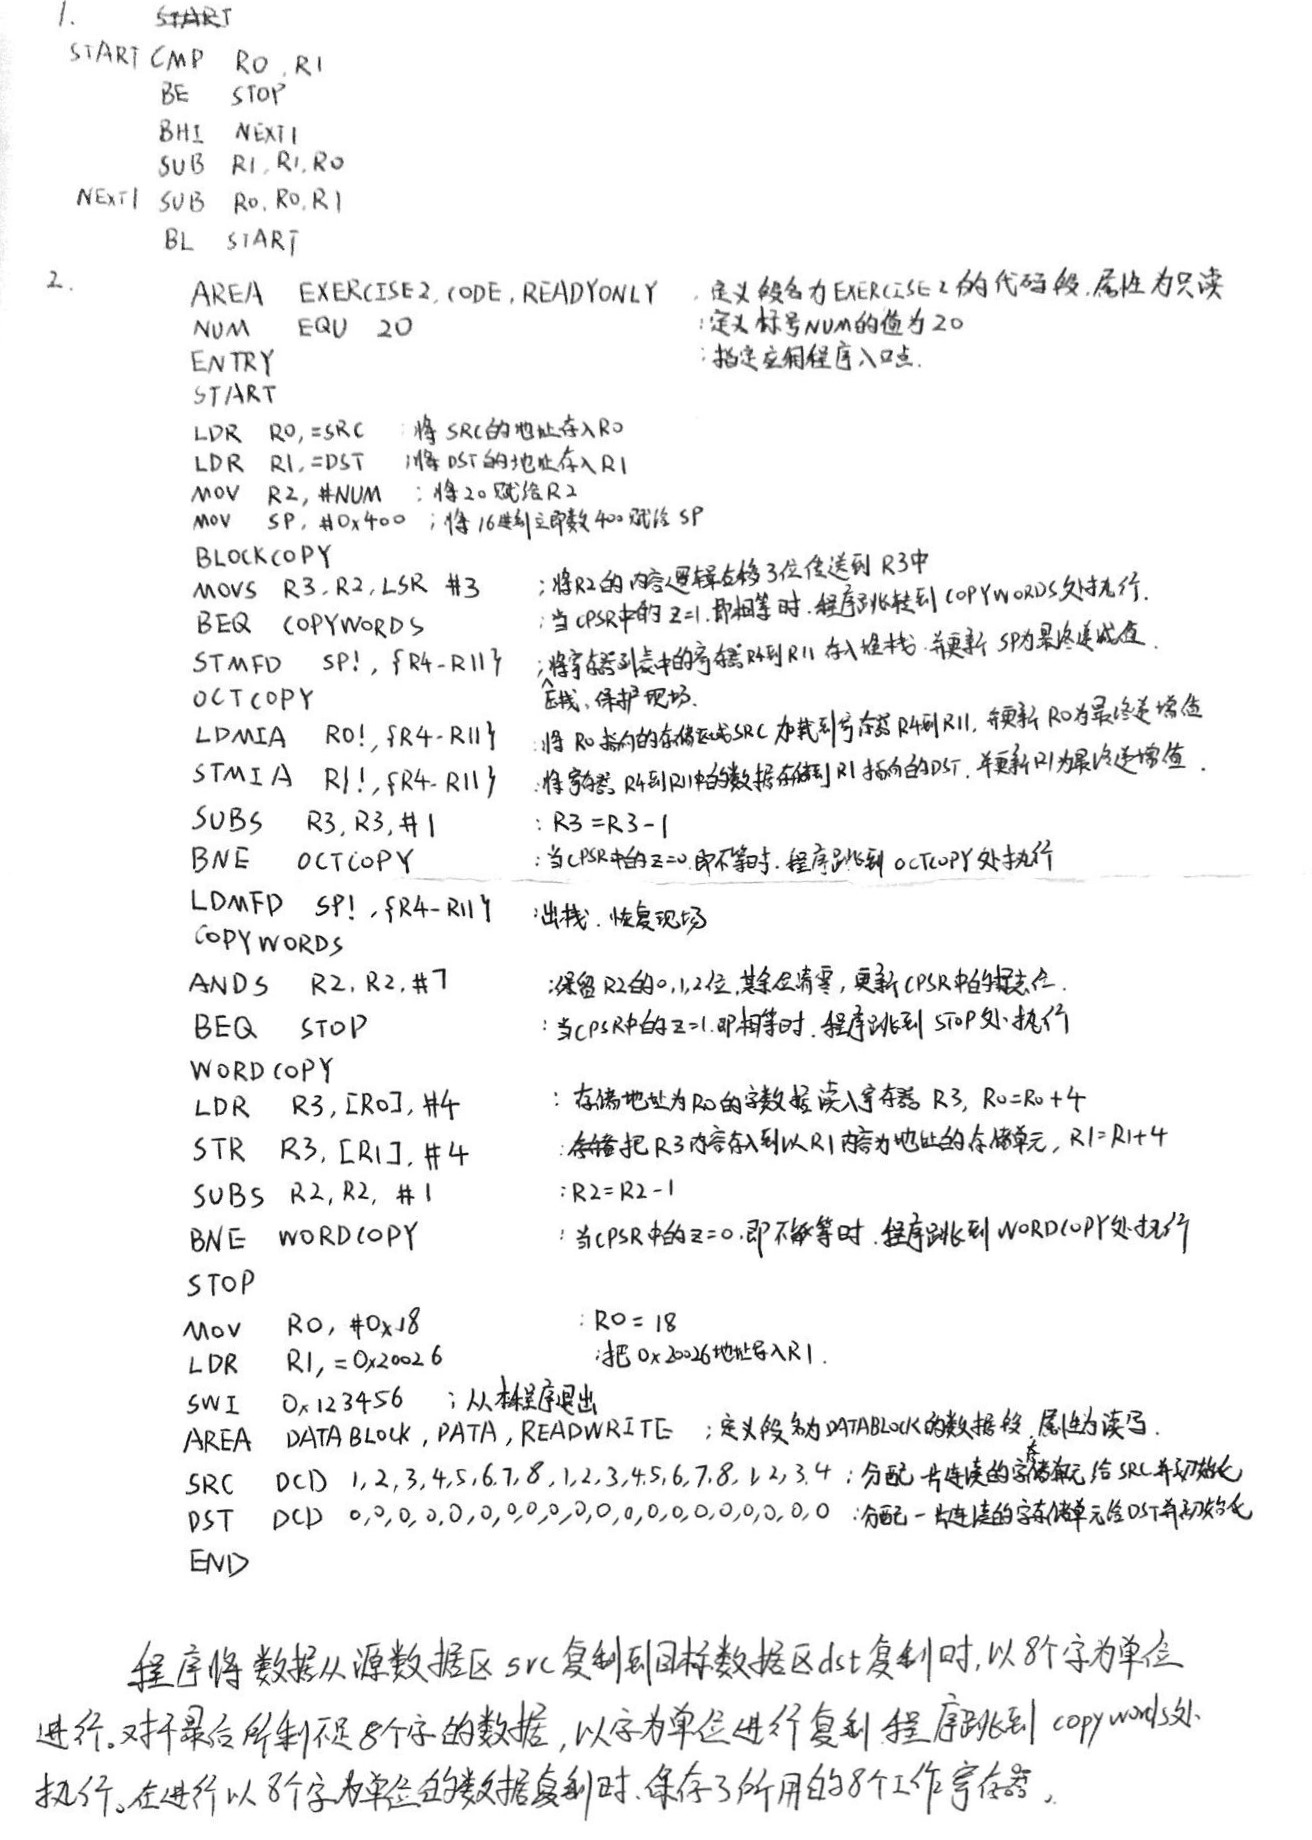 1. START
START CMP R0, R1
BE STOP
BHI NEXT1
SUB R1, R1, R0
NEXT1 SUB R0, R0, R1
BL START
2. AREA EXERCISE2, CODE, READYONLY ; 定义段名为EXERCISE2的代码段,属性为只读
NUM EQU 20 ; 定义标号NUM的值为20
ENTRY ; 指定应用程序入口点.
START
LDR R0, =SRC ; 将SRC的地址存入R0
LDR R1, =DST ; 将DST的地址存入R1
MOV R2, #NUM ; 将20赋给R2
MOV SP, #0x400 ; 将16进制立即数400赋给SP
BLOCKCOPY
MOVS R3, R2, LSR #3 ; 将R2的内容逻辑右移3位传送到R3中
BEQ COPYWORDS ; 当CPSR中的Z=1,即相等时,程序跳转到COPYWORDS处执行.
STMFD SP!, {R4-R11} ; 将寄存器列表中的寄存器R4到R11存入堆栈,并更新SP为最终递减值.
OCTCOPY 压栈、保护现场.
LDMIA R0!, {R4-R11} ; 将R0指向的存储区域SRC加载到寄存器R4到R11,并更新R0为最终递增值
STMIA R1!, {R4-R11} ; 将寄存器R4到R11中的数据存储到R1指向的DST,并更新R1为最终递增值.
SUBS R3, R3, #1 ; R3=R3-1
BNE OCTCOPY ; 当CPSR中的Z=0,即不等时,程序跳到OCTCOPY处执行
LDMFD SP!, {R4-R11} ; 出栈,恢复现场
COPYWORDS
ANDS R2, R2, #7 ; 保留R2的0,1,2位,其余位清零,更新CPSR中的标志位.
BEQ STOP ; 当CPSR中的Z=1,即相等时,程序跳到STOP处执行
WORDCOPY
LDR R3, [R0], #4 ; 存储地址为R0的字数据读入寄存器R3, R0=R0+4
STR R3, [R1], #4 ; 存储把R3内容存入到以R1内容为地址的存储单元, R1=R1+4
SUBS R2, R2, #1 ; R2=R2-1
BNE WORDCOPY ; 当CPSR中的Z=0,即不等时,程序跳到WORDCOPY处执行
STOP
MOV R0, #0x18 ; R0=18
LDR R1, =0x20026 ; 把0x20026地址导入R1.
SWI 0x123456 ; 从本程序退出
AREA DATABLOCK, DATA, READWRITE ; 定义段名为DATABLOCK的数据段,属性为读写.
SRC DCD 1,2,3,4,5,6,7,8,1,2,3,4,5,6,7,8,1,2,3,4 ; 分配一片连续的字存储单元给SRC并初始化
DST DCD 0,0,0,0,0,0,0,0,0,0,0,0,0,0,0,0,0,0,0,0 ; 分配一片连续的字存储单元给DST并初始化
END
程序将数据从源数据区src复制到目标数据区dst复制时,以8个字为单位
进行。对于最后所剩不足8个字的数据,以字为单位进行复制,程序跳到copywords处
执行。在进行以8个字为单位的数据复制时,保存了所用的8个工作寄存器.